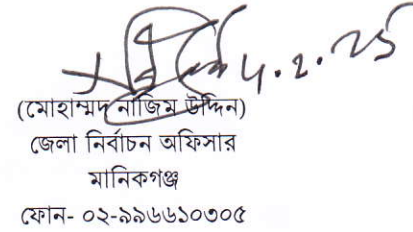 ৫.২.২৫
(মোহাম্মদ নাজিম উদ্দিন)
জেলা নির্বাচন অফিসার
মানিকগঞ্জ
ফোন- ০২-৯৯৬৬১০৩০৫